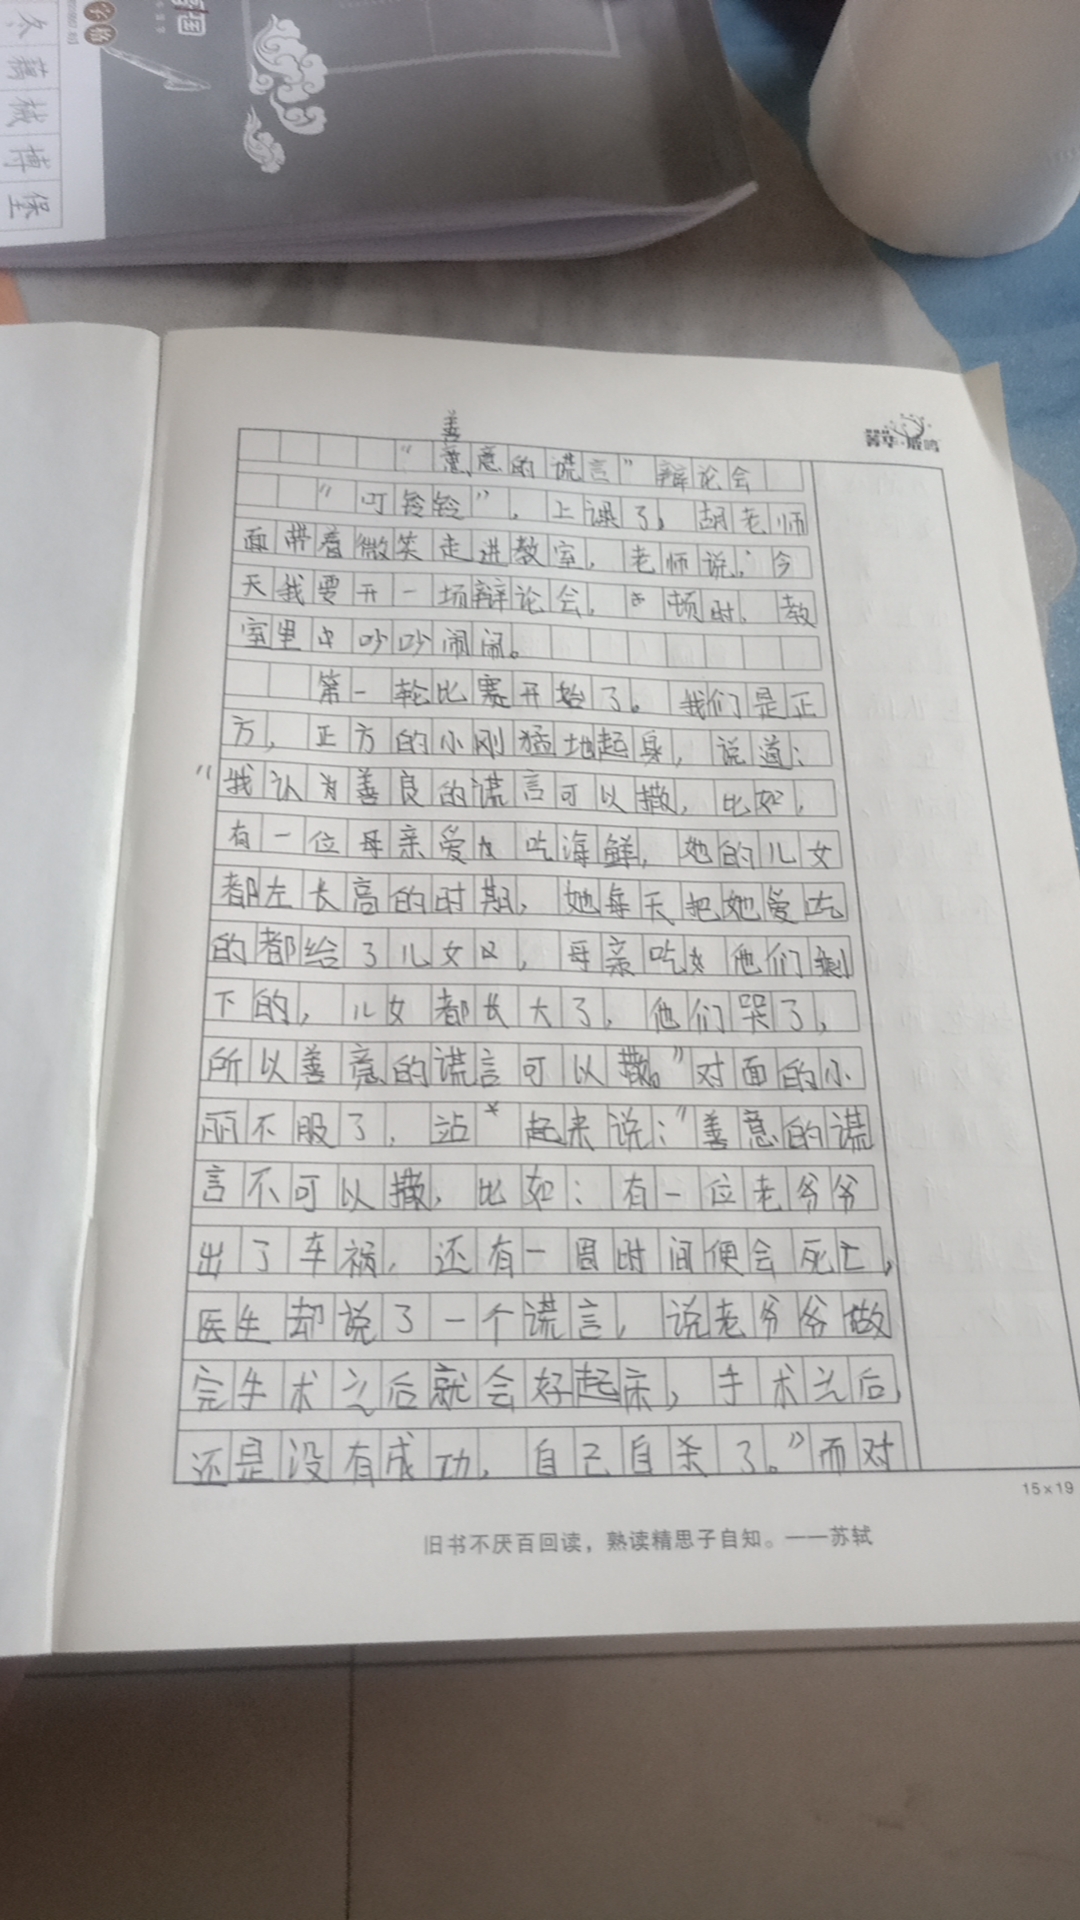 冬
藕
械
博
堡
字帖
善
“意意的谎言”辩论会
“叮铃铃”，上课了，胡老师
面带着微笑走进教室，老师说：今
天我要开一场辩论会，”顿时，教
室里中吵吵闹闹。
第一轮比赛开始了。我们是正
方，正方的小刚猛地起身，说道：
“我认为善良的谎言可以撒，比如，
有一位母亲爱吃海鲜，她的儿女
都在长高的时期，她每天把她爱吃
的都给了儿女，母亲吃他们剩
下的，儿女都长大了，他们哭了，
所以善意的谎言可以撒。”对面的小
丽不服了，站起来说：“善意的谎
言不可以撒，比如：有一位老爷爷
出了车祸，还有一周时间便会死亡，
医生却说了一个谎言，说老爷爷做
完手术之后就会好起床，手术之后，
还是没有成功，自己自杀了。”而对
15×19
旧书不厌百回读，熟读精思子自知。——苏轼